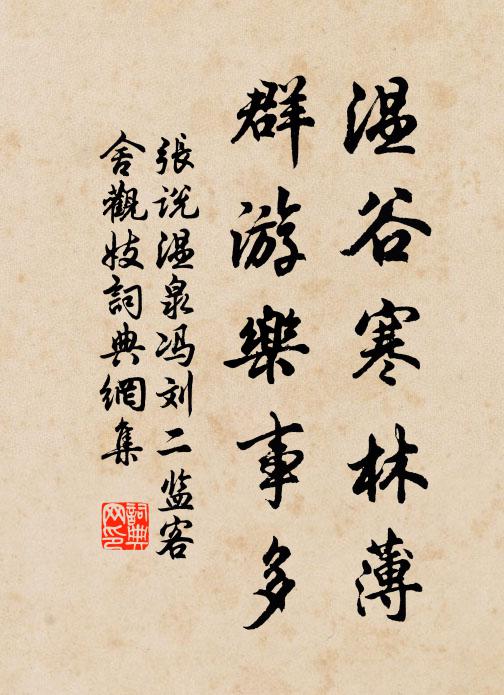 温谷寒林薄
群游樂事多
張说温泉冯刘二监客
舍觀妓詞典網集
詞典网印